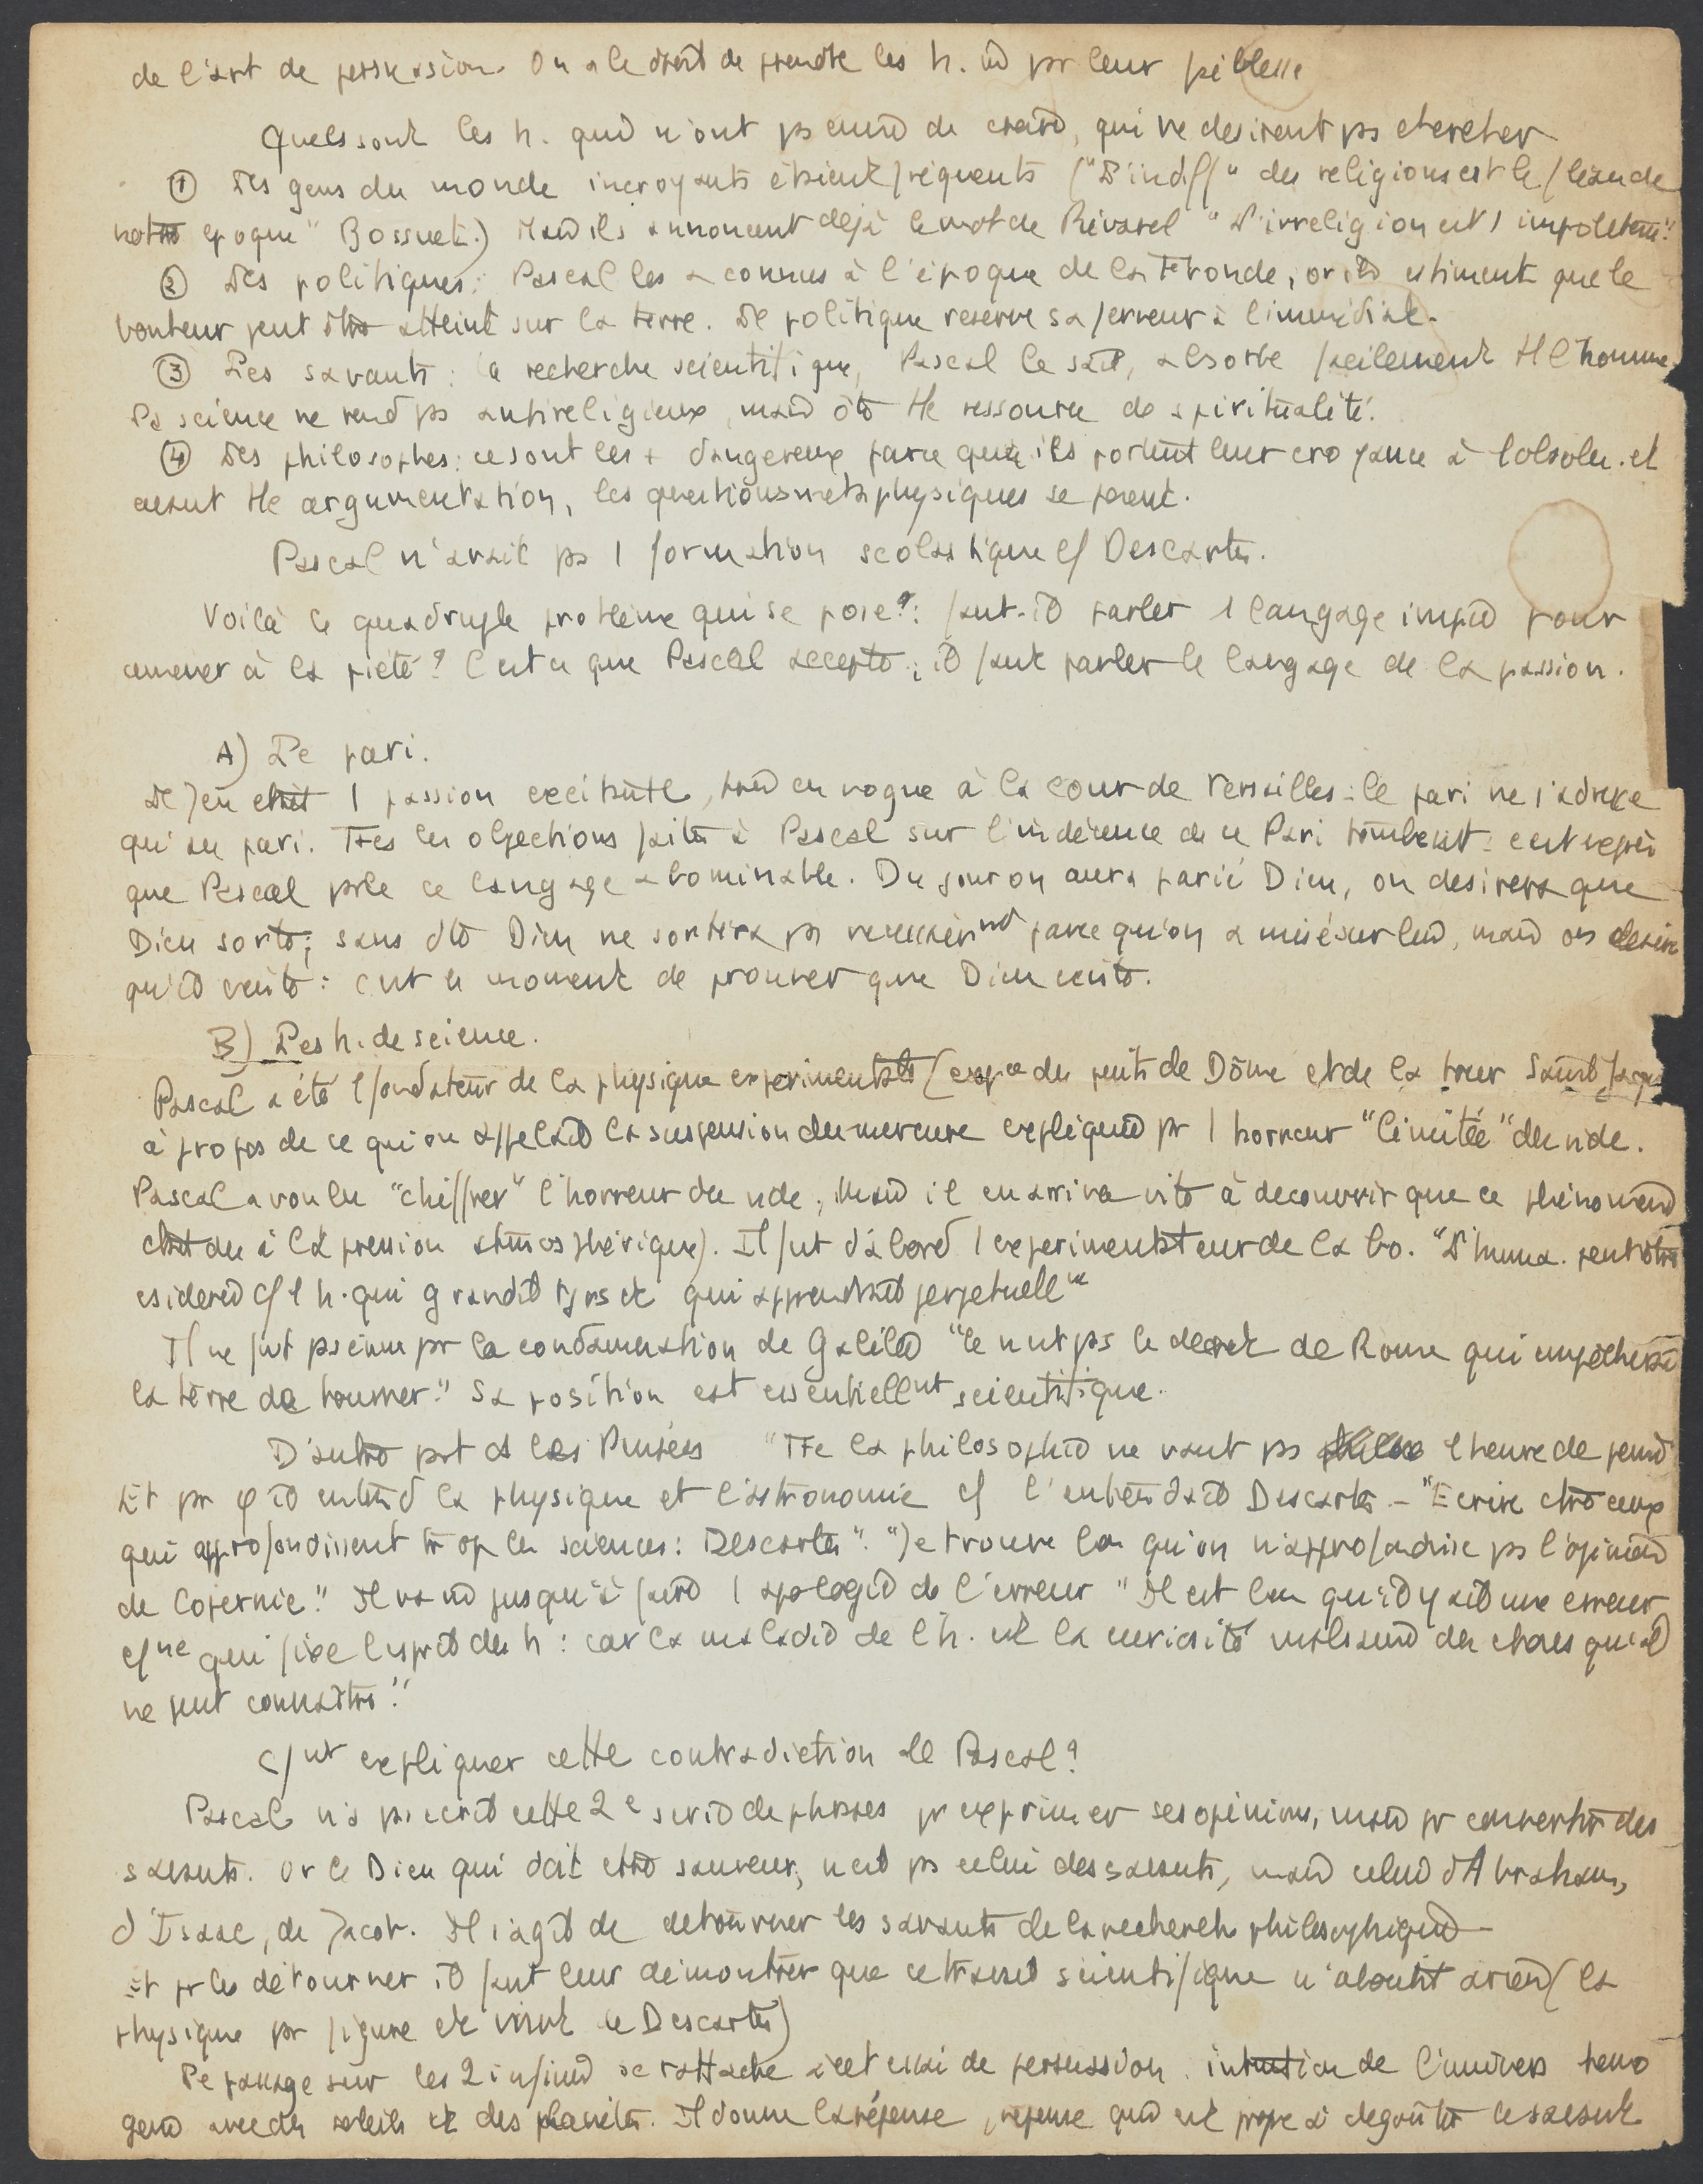 de l'art de persuasion. On a le droit de prendre les h. par leur faiblesse
Quels sont les h. qui n'ont ps envie de croire, qui ne desirent ps chercher
① Les gens du monde incroyants étaient fréquents ("L'indiff" des religions est le fléau de
notre epoque" Bossuet.) Mais ils annoncent déjà le mot de Rivarol "L'irreligion est 1 impolitesse"
② Les politiques : Pascal les a connus à l'époque de la Fronde, or ils estiment que le
bonheur peut être atteint sur la terre. Le politique reserve sa ferveur à l'immédiat.
③ Les savants : la recherche scientifique, Pascal le sait, absorbe facilement tt l'homme.
La science ne rend ps antireligieux, mais ôte tte ressource de spiritualité.
④ Les philosophes : ce sont les + dangereux parce que ils portent leur croyance à l'absolu. et
avant tte argumentation, les questions métaphysiques se posent.
Pascal n'avait ps 1 formation scolastique c/ Descartes.
Voilà le quadruple problème qui se pose : faut-il parler 1 langage impie pour
amener à la piété ? C'est ce que Pascal accepte ; il faut parler le langage de la passion.
A) Le pari.
Le jeu était 1 passion excitante, mise en vogue à la cour de Versailles : le pari ne s'adresse
qu'au pari. Ttes les objections faites à Pascal sur l'indécence de ce Pari tombent : c'est exprès
que Pascal parle ce langage abominable. Du jour on aura parié Dieu, on desirera que
Dieu sorte ; sans dte Dieu ne sortira ps nécessairnt parce qu'on a misé sur lui, mais on desire
qu'il existe : c'est le moment de prouver que Dieu existe.
B) Les h. de science.
Pascal a été 1 fondateur de la physique experimentale (expce du puits de Dôme et de la tour Saint Jacques
à propos de ce qu'on appelait la suspension du mercure expliquée pr 1 horreur "limitée" du vide.
Pascal a voulu "chiffrer" l'horreur du vide ; Mais il en arriva vite à decouvrir que ce phénomène
était du à la pression atmosphérique). Il fut d'abord 1 experimentateur de labo. "L'huma. peut être
csidérée c/ 1 h. qui grandit tjrs et qui apprendrait perpetuellnt
Il ne fut ps ému pr la condamnation de Galilée "Ce n'est ps le decret de Rome qui empêchera
la terre de tourner." Sa position est essentiellnt scientifique.
D'autre part ds les Pensées "Tte la philosophie ne vaut ps 1 heure de peine
Et pr φ il entend la physique et l'astronomie c/ l'entendait Descartes - "Ecrire ctre ceux
qui approfondissent trop les sciences : Descartes". "Je trouve bon qu'on n'approfondisse ps l'opinion
de Copernic." Il va jusqu'à faire 1 apologie de l'erreur "Il est bon qu'il y ait une erreur
c/ne qui fixe l'esprit des h : car la maladie de l'h. est la curiosité malsaine des choses qu'il
ne peut connaître."
C/nt expliquer cette contradiction de Pascal ?
Pascal n'a ps ecrit cette 2e serie de phrases pr exprimer ses opinions, mais pr convertir des
savants. Or le Dieu qui doit être sauveur, n'est ps celui des savants, mais celui d'Abraham,
d'Isaac, de Jacob. Il s'agit de detourner les savants de la recherche philosophique
Et pr les détourner il faut leur démontrer que ce travail scientifique n'aboutit à rien (la
physique pr figure et mvnt de Descartes)
Le passage sur les 2 infinis se rattache à cet essai de persuasion. intuition de l'univers homo
gène avec des soleils et des planètes. Il donne la réponse, reponse qui est propre à degoûter le savant